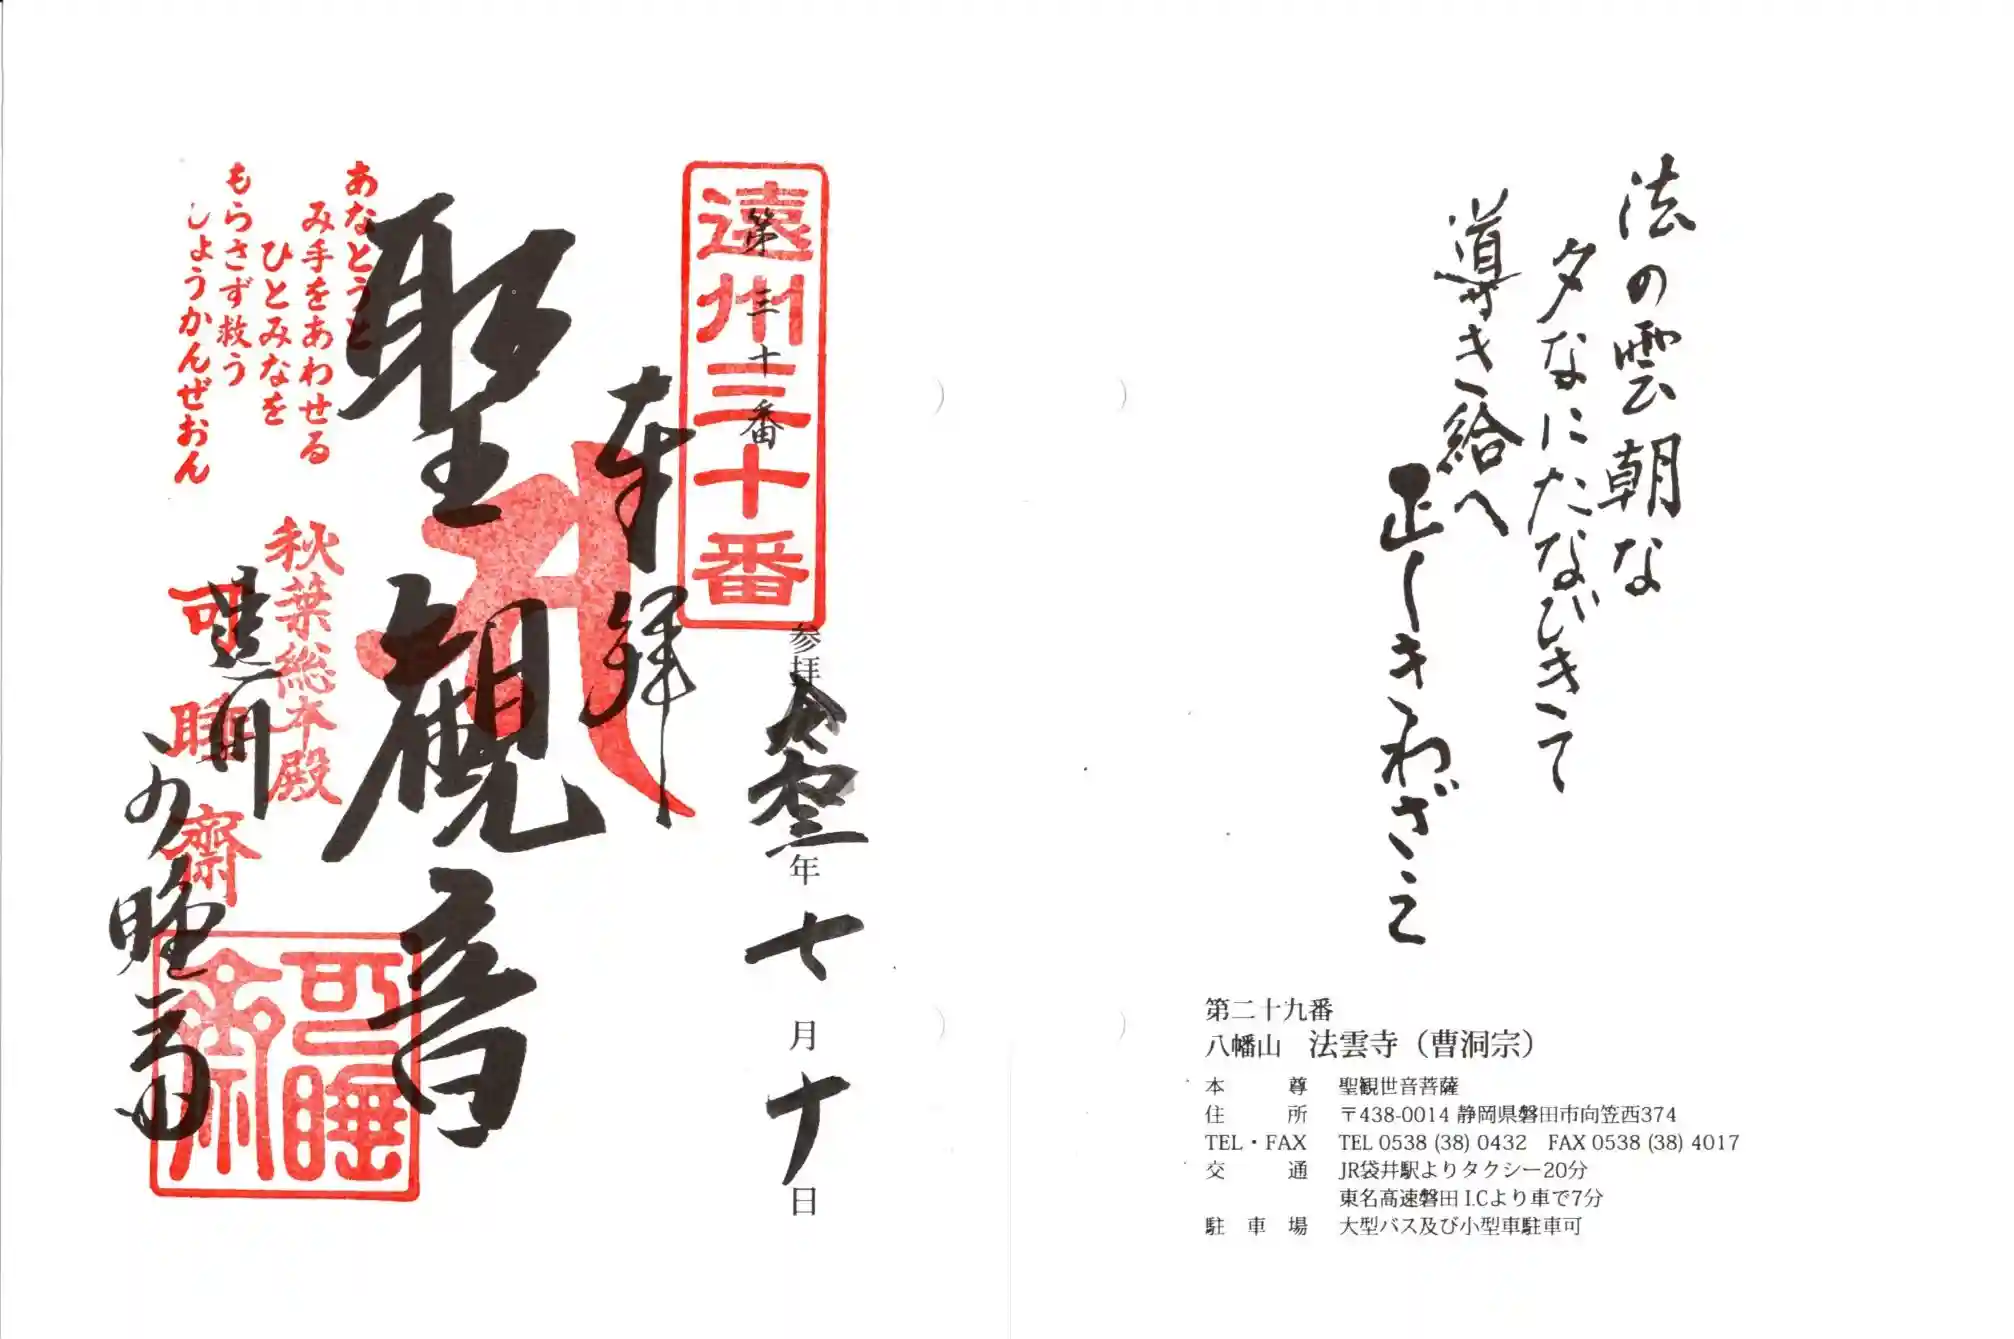 法の雲朝な
夕なにたなびきて
導き給へ
正しきわざ
第二十九番
八幡山　法雲寺（曹洞宗）
本尊　聖観世音菩薩
住所　〒438-0014 静岡県磐田市向笠西374
TEL・FAX　TEL 0538 (38) 0432　FAX 0538 (38) 4017
交通　JR袋井駅よりタクシー20分
東名高速磐田 I.Cより車で7分
駐車場　大型バス及び小型車駐車可
参拝令和三年七月十日
遠州三十番
第三十番
奉拝
聖観音
あなとうと
み手をあわせる
ひとみなを
もらさず救う
しょうかんぜおん
秋葉総本殿
可睡齋
遠州
可睡斎
可睡齋